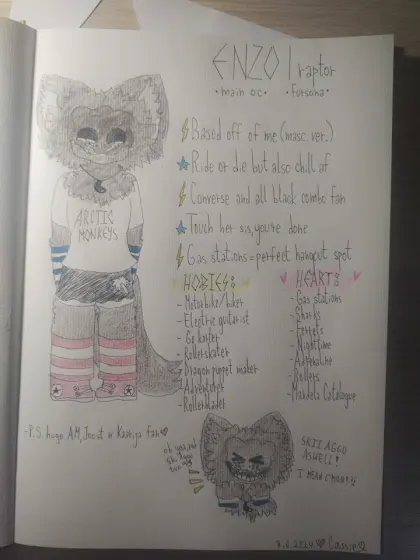 ENZO | raptor
• main oc • • fursona •
Based off of me (masc. ver.)
Ride or die but also chill af
Converse and all black combo fan
Touch her sis, you're done
Gas stations = perfect hangout spot
ARCTIC
MONKEYS
HOBIES:
- Motorbike/biker
- Electric guitarist
- Go karter
- Rollerskater
- Dragon puppet maker
- Adventurer
- Rollerblader
HEART:
- Gas stations
- Sharks
- Ferrets
- Nighttime
- Adrenaline
- Rollers
- Mandela Catalogue
- P.S. hugo AM, Joost n Kaarija fan
I MEAN C'MON
Cassie